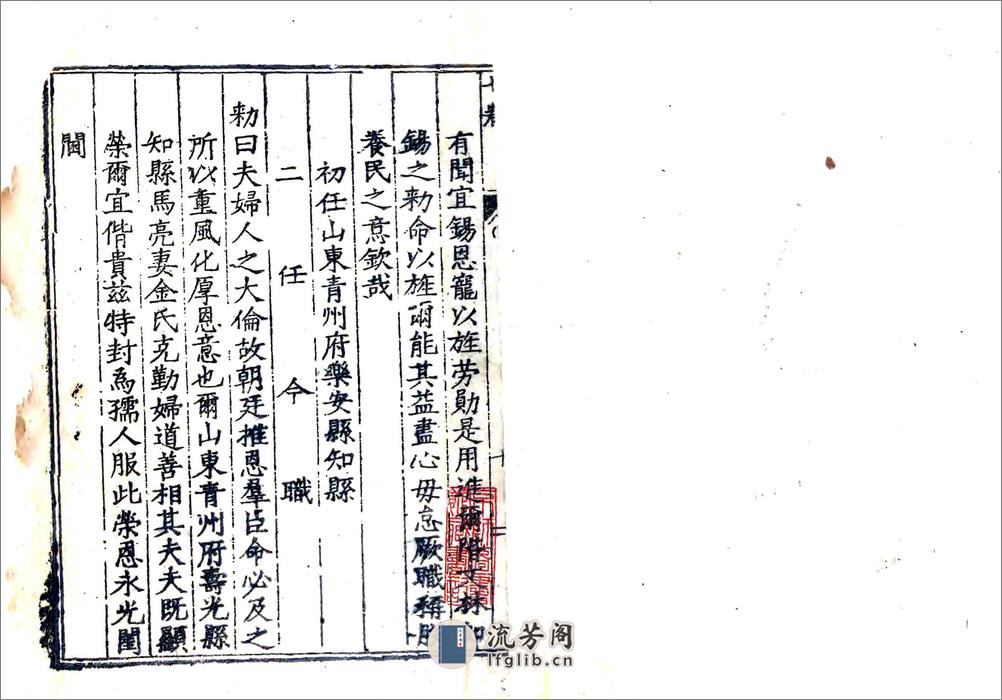 有聞宜錫恩寵以旌劳勛是用進爾階文林
錫之勑命以旌爾能其益盡心毋怠厥職稱
養民之意欽哉
初任山東青州府樂安縣知縣
二任今職
勑曰夫婦人之大倫故朝廷推恩羣臣命必及之
所以重風化厚恩意也爾山東青州府壽光縣
知縣馬亮妻金氏克勤婦道善相其夫夫既顯
榮爾宜偕貴兹特封為孺人服此榮恩永光閨
閫
流芳阁
lfglib.cn